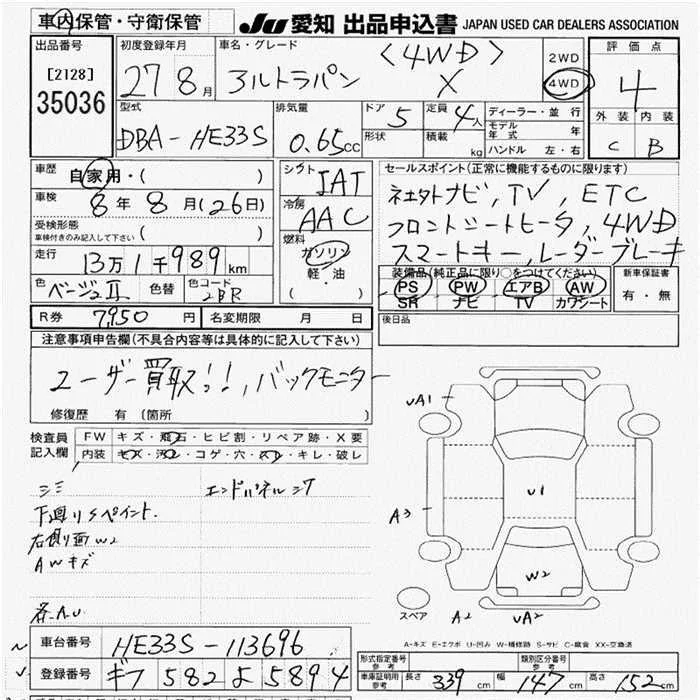 車内保管・守衛保管
JU 愛知 出品申込書 JAPAN USED CAR DEALERS ASSOCIATION
出品番号 初度登録年月 車名・グレード 〈4WD〉 2WD 評価点
[2128] 27 8月 アルトラパン X 4WD 4
35036 型式 排気量 ドア 5 定員 4人 ディーラー・並行 外装 内装
DBA-HE33S 0.65CC 形状 積載 kg モデル年式 年 C B
ハンドル 左・右
車歴 自家用・( ) シフト IAT セールスポイント(正常に機能するものに限ります)
車検 8年8月(26日) 冷房 AAC ナビ, TV, ETC
受検形態 車検付きのみ記入して下さい ( ) フロントシートヒータ, 4WD
走行 13万1千989km 燃料 ガソリン スマートキー, レーダーブレーキ
軽・油 ( ) 装備品(純正品に限り○をつけてください) 新車保証書
色 ベージュII 色替 色コード 2BR PS PW エアB AW 有・無
SR ナビ TV カワシート
R券 7950円 名変期限 月 日 後日品
注意事項申告欄(不具合内容等は具体的に記入して下さい)
ユーザー買取!!, バックモニター
修復歴 有 (箇所 )
検査員 記入欄 FW キズ・飛石・ヒビ割・リペア跡・X要
内装 キズ・汚レ・コゲ・穴・スレ・キレ・破レ
シミ エンドパネルシT
下廻りSペイント.
右側面W2
AWキズ
各A.U
UA1
U1
A3
W2
スペア A2 UA2
A-キズ E-エクボ U-凹み W-補修跡 S-サビ C-腐食 XX-交換済
車台番号 HE33S-113696 形式指定番号 参考 類別区分番号 参考
登録番号 ギフ 582 よ 5894 車庫証明用 参考 長さ 339cm 幅 147cm 高さ 152cm